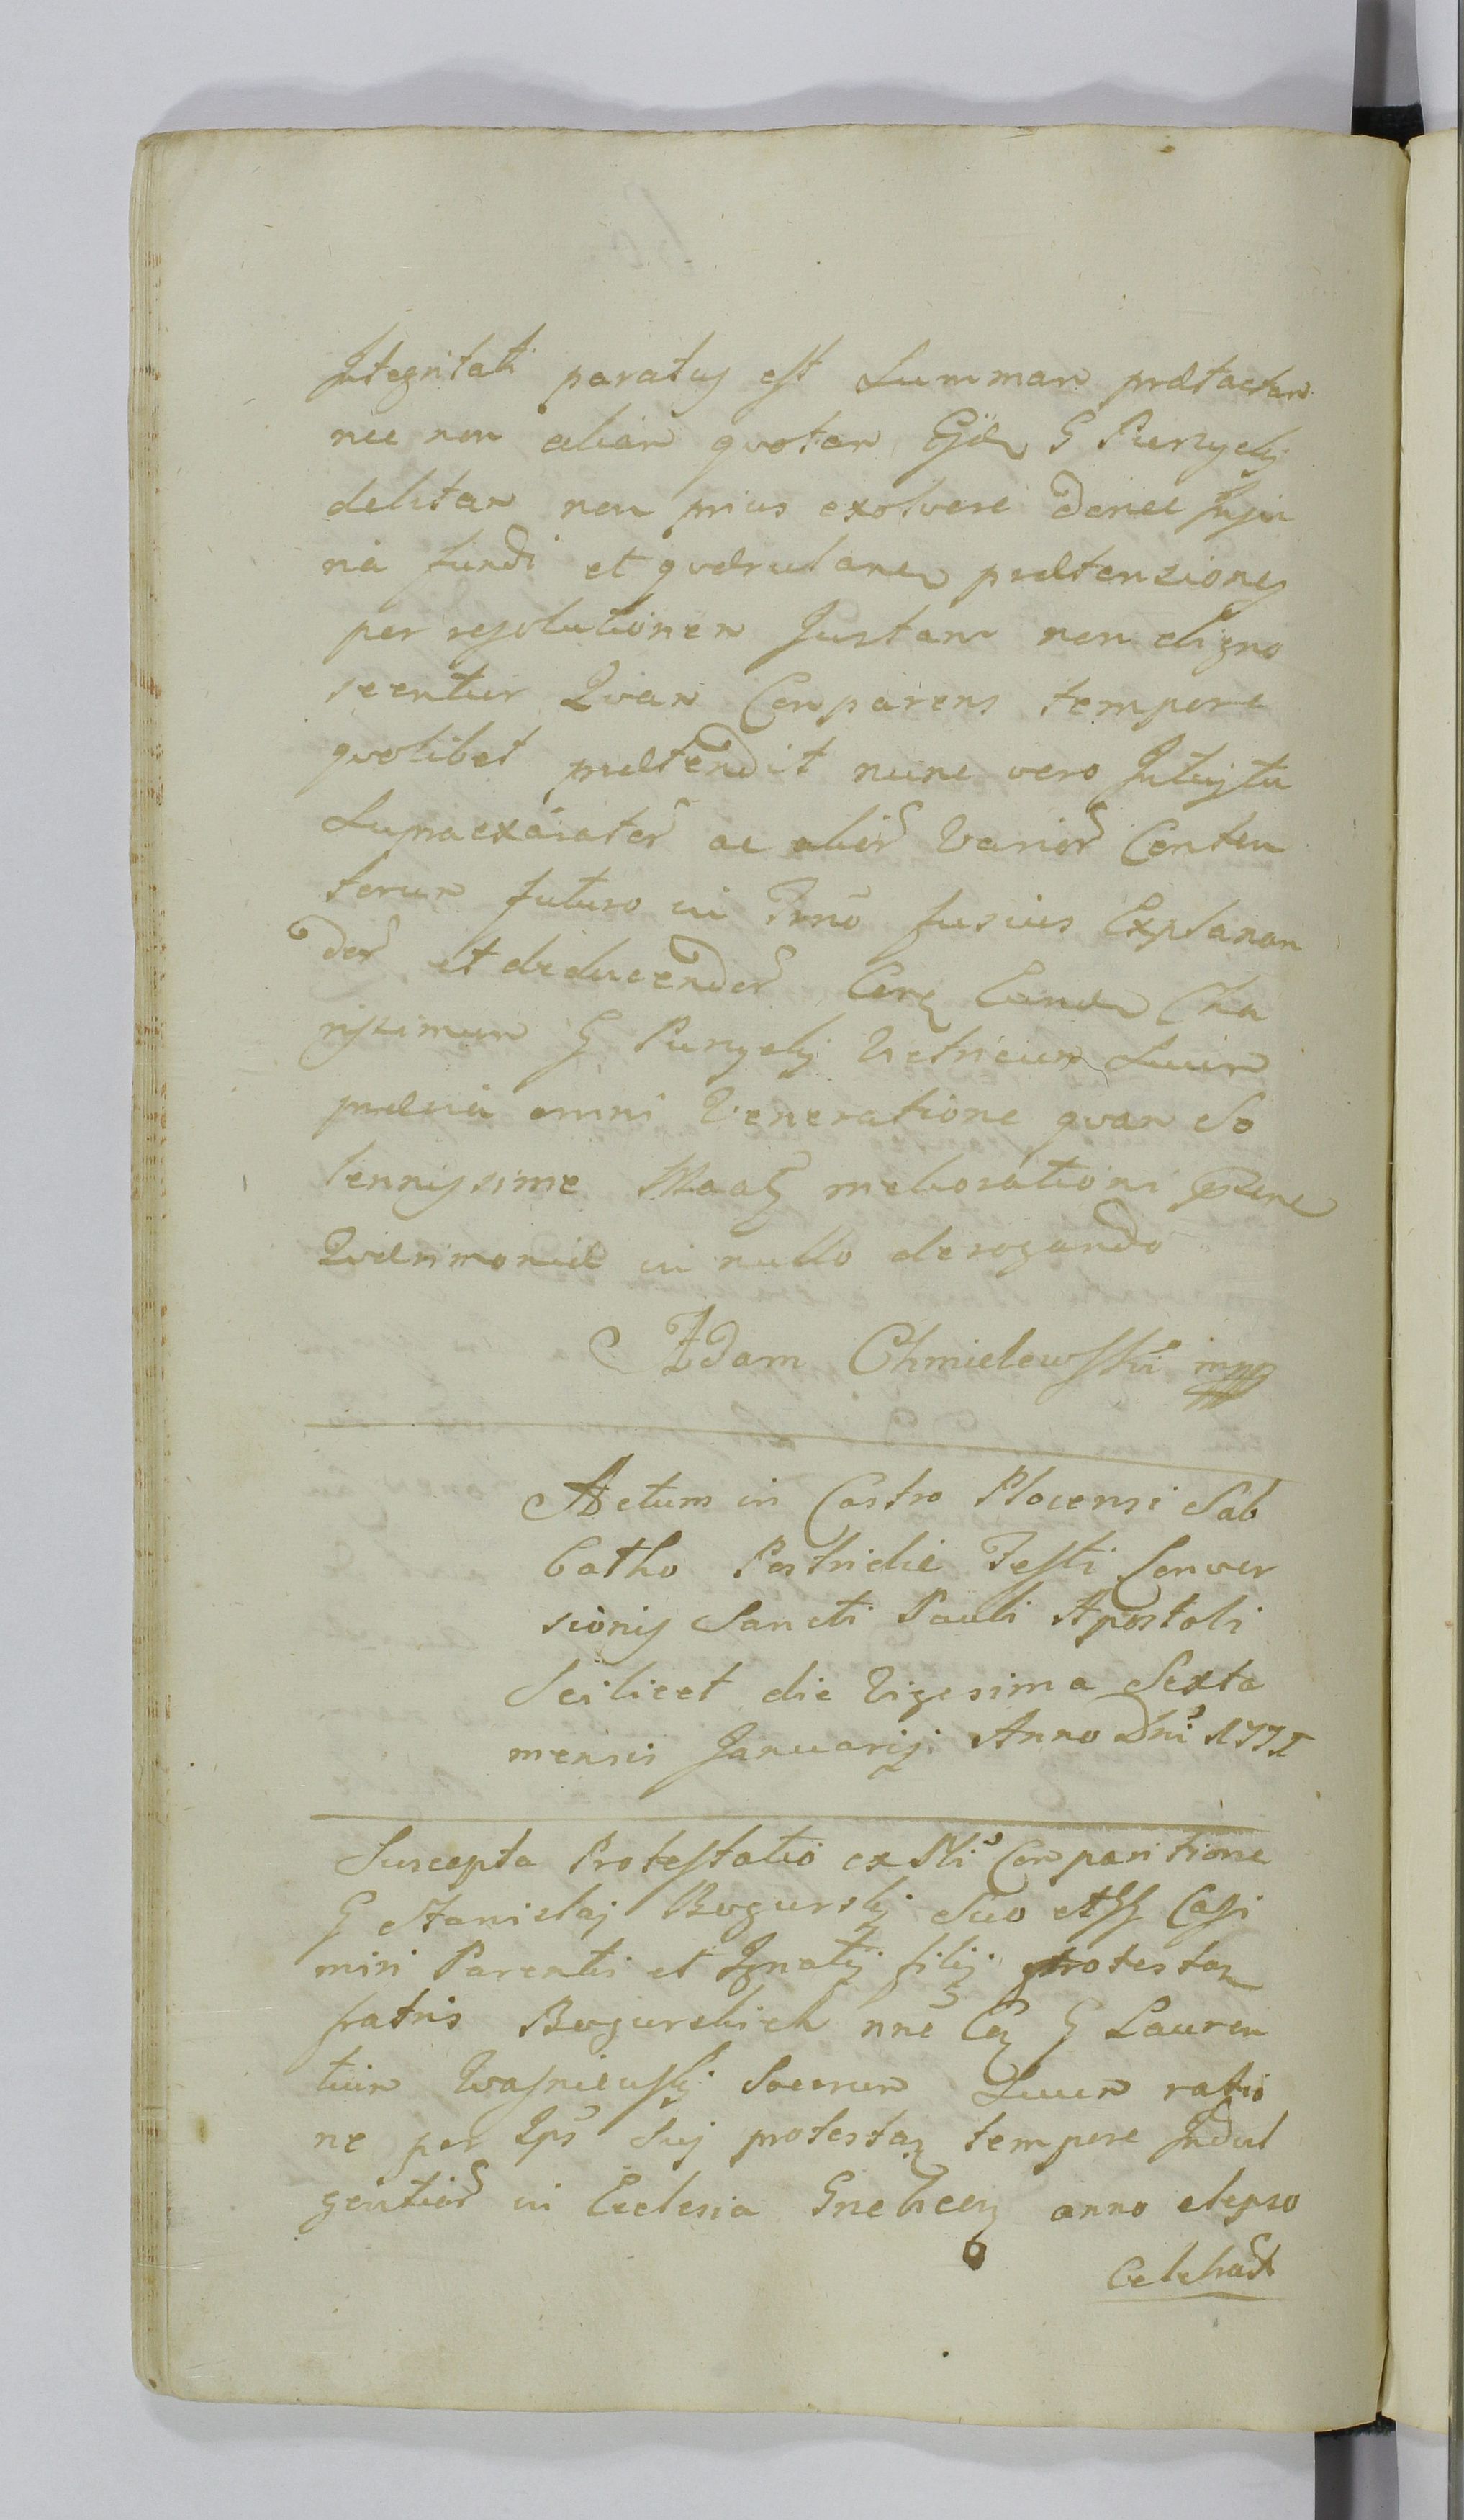 Integritati paratus est Summam prætactam
nec non aliam quotam Ejdem G Purzycki
debitam non prius exolvere donec Inju
ria fundi et quærulanem prætensiones
per resolutionem Justam non digno
scentur Quam Comparens tempore
quolibet prætendit nunc vero Intuitu
Supraexarator ac alior Varior Conten
torum futuro in Trno fusius Explanan
dor et deducendor Cora Eundem Cha
rissimum G Purzycki Vitricum Suum
prævia omni Veneratione quam So
lennissime Maaq meliorationi
Quærimoniæ in nullo derogando
Adam Chmielewski mpp
Actum in Castro Plocensi Sab
batho Postridie Festi Conver
sionis Sancti Pauli Apostoli
Scilicet die Vigesima Sexta
mensis Januarij Anno Dni 1771
Suscepta Protestatio ex Psli Comparitione
G Stanislaj Bogurskj Suo ac Casi
miri Parentis et Ignatij filij protestan
fratris Bogurskich nne Coq G Lauren
tium Wasniewskj Socerum Suum ratio
ne per Ips Suj protestan tempore Indul
gentior in Ecclesia anno elapso
Celebrat